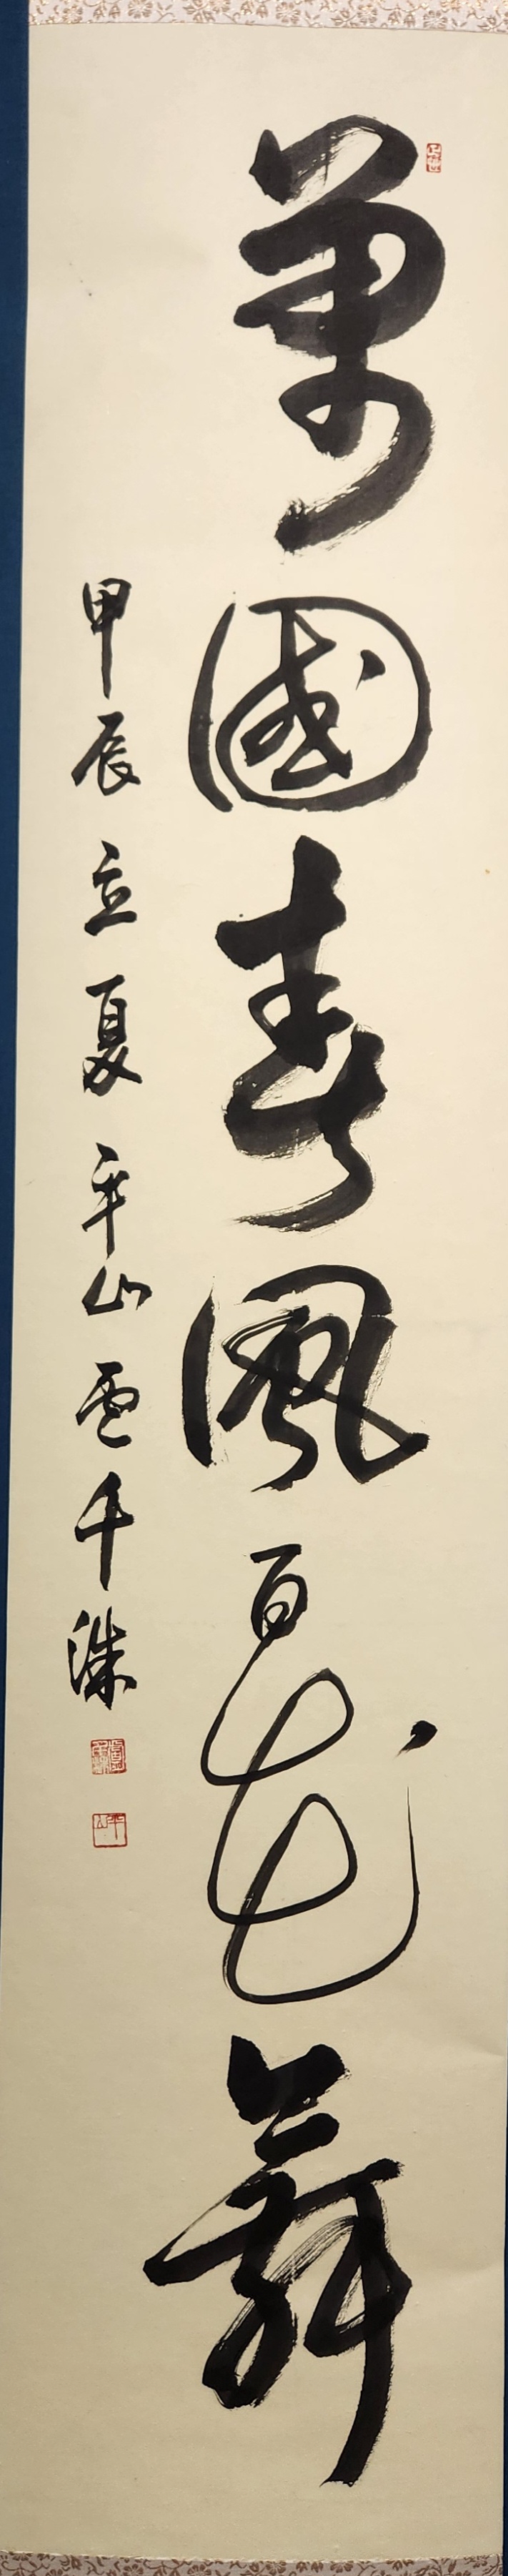 萬國春風百花舞
甲辰立夏平山千洙
平山